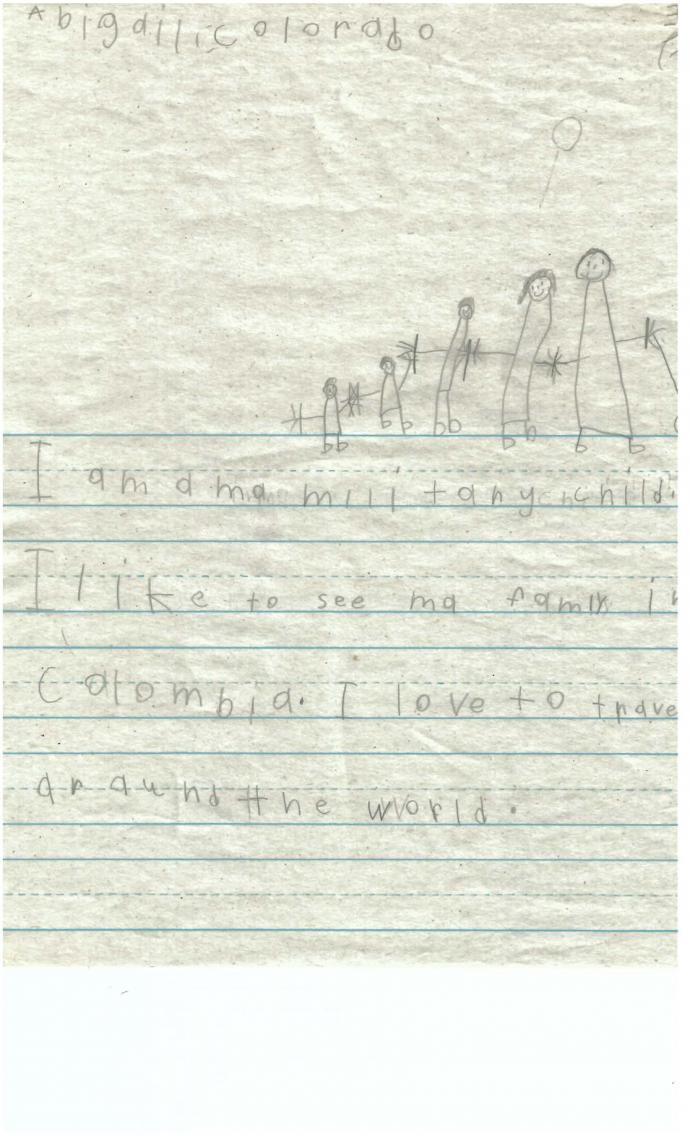 Abigail Colorado
I am a ma military child.
I like to see ma family in
Calombia. I love to trave
araund the world.